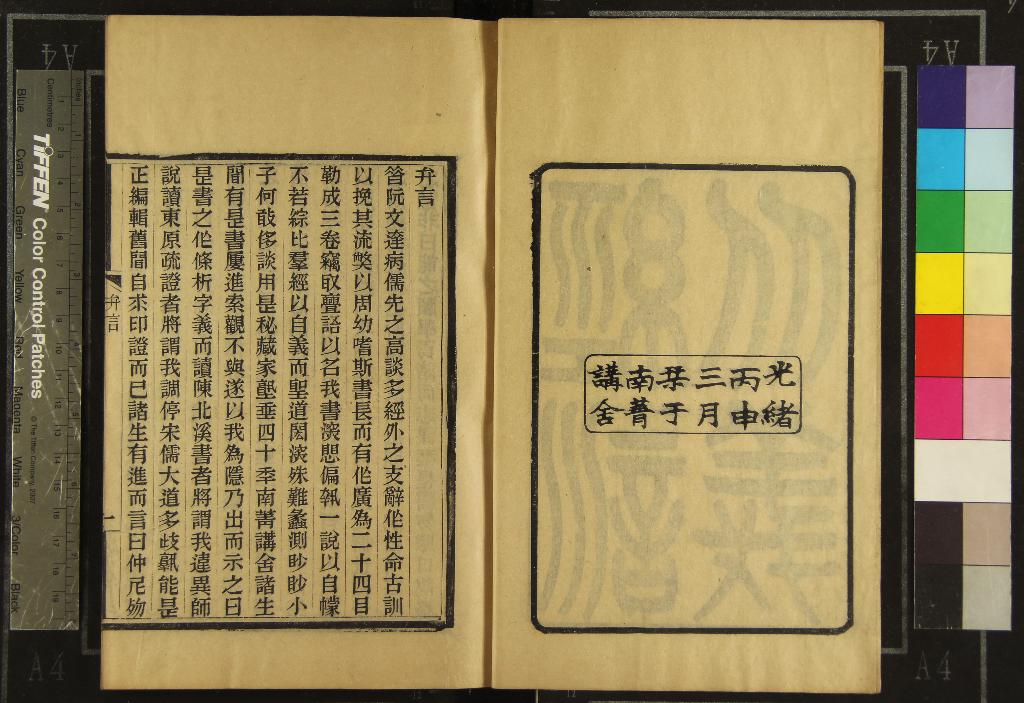 光緒
丙申
三月
栞于
南菁
講舍
弁言
昝阮文達病儒先之高談多經外之支辭作性命古訓
以挽其流獘以周幼嗜斯書長而有作廣為二十四目
勒成三卷竊取亹語以名我書深懲偏執一說以自幪
不若綜比羣經以自義而聖道閎深殊難蠡測眇眇小
子何敢侈談用是秘藏家壑垂四十秊南菁講舍諸生
聞有是書屢進索觀不與遂以我為隱乃出而示之曰
是書之作條析字義而讀陳北溪書者將謂我違異師
說讀東原疏證者將謂我調停宋儒大道多歧孰能是
正編輯舊聞自求印證而已諸生有進而言曰仲尼歾
弁言
一
TIFFEN Color Control Patches
© The Tiffen Company, 2007
Centimetres
Inches
Blue
Cyan
Green
Yellow
Red
Magenta
White
3/Color
Black
A4
A4
A4
A4